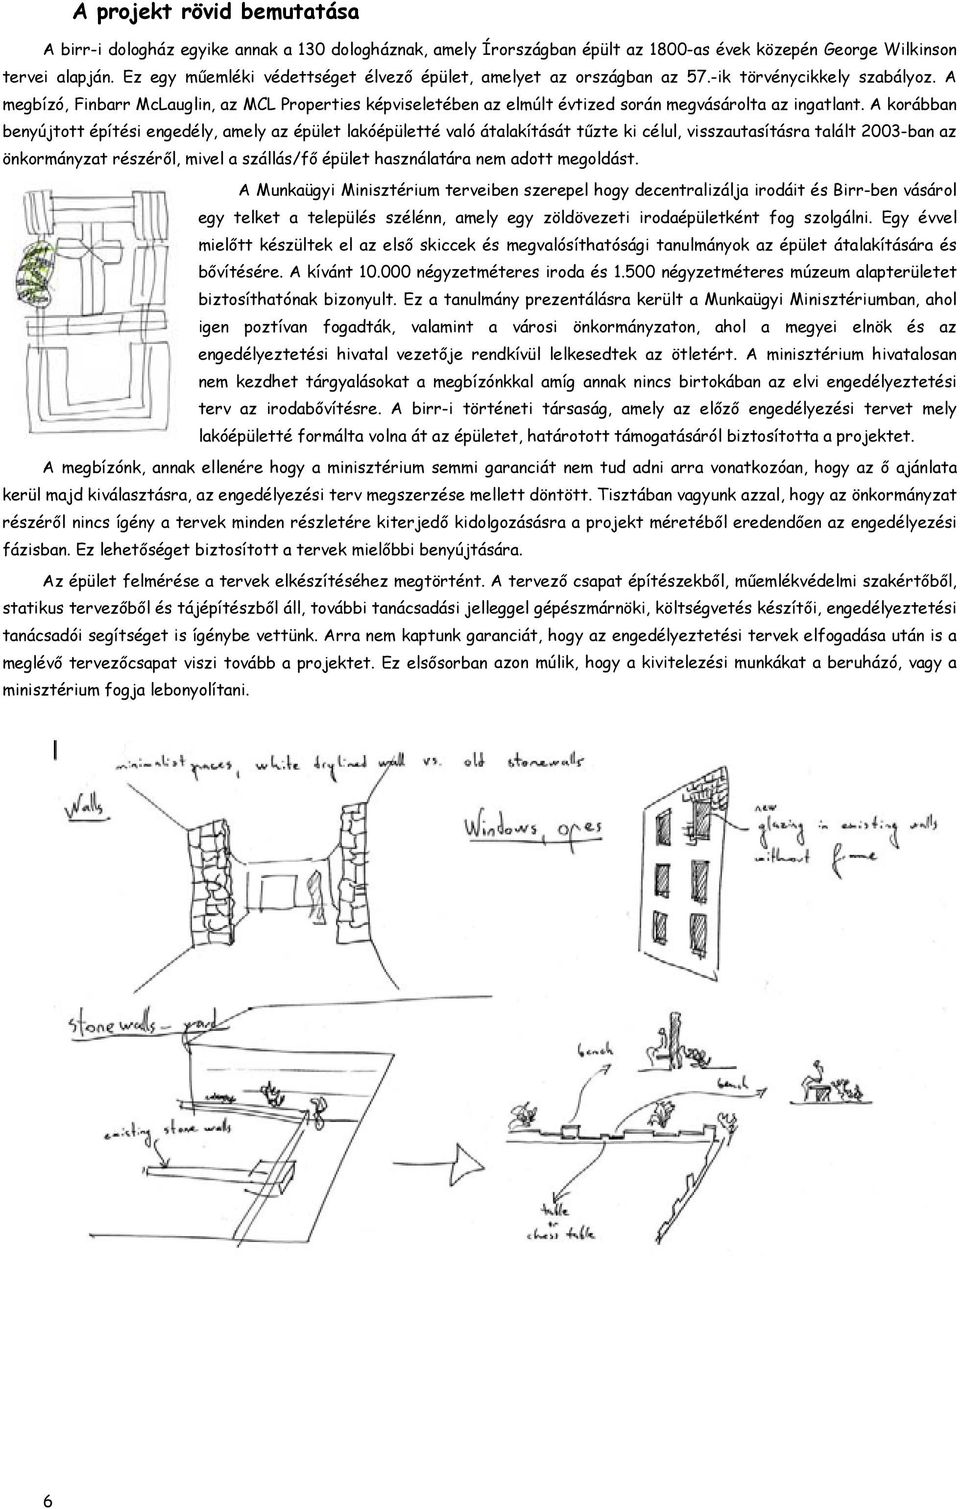 A projekt rövid bemutatása
A birr-i dologház egyike annak a 130 dologháznak, amely Írországban épült az 1800-as évek közepén George Wilkinson
tervei alapján. Ez egy műemléki védettséget élvező épület, amelyet az országban az 57.-ik törvénycikkely szabályoz. A
megbízó, Finbarr McLauglin, az MCL Properties képviseletében az elmúlt évtized során megvásárolta az ingatlant. A korábban
benyújtott építési engedély, amely az épület lakóépületté való átalakítását tűzte ki célul, visszautasításra talált 2003-ban az
önkormányzat részéről, mivel a szállás/fő épület használatára nem adott megoldást.
A Munkaügyi Minisztérium terveiben szerepel hogy decentralizálja irodáit és Birr-ben vásárol
egy telket a település szélénn, amely egy zöldövezeti irodaépületként fog szolgálni. Egy évvel
mielőtt készültek el az első skiccek és megvalósíthatósági tanulmányok az épület átalakítására és
bővítésére. A kívánt 10.000 négyzetméteres iroda és 1.500 négyzetméteres múzeum alapterületet
biztosíthatónak bizonyult. Ez a tanulmány prezentálásra került a Munkaügyi Minisztériumban, ahol
igen poztívan fogadták, valamint a városi önkormányzaton, ahol a megyei elnök és az
engedélyeztetési hivatal vezetője rendkívül lelkesedtek az ötletért. A minisztérium hivatalosan
nem kezdhet tárgyalásokat a megbízónkkal amíg annak nincs birtokában az elvi engedélyeztetési
terv az irodabővítésre. A birr-i történeti társaság, amely az előző engedélyezési tervet mely
lakóépületté formálta volna át az épületet, határotott támogatásáról biztosította a projektet.
A megbízónk, annak ellenére hogy a minisztérium semmi garanciát nem tud adni arra vonatkozóan, hogy az ő ajánlata
kerül majd kiválasztásra, az engedélyezési terv megszerzése mellett döntött. Tisztában vagyunk azzal, hogy az önkormányzat
részéről nincs ígény a tervek minden részletére kiterjedő kidolgozásásra a projekt méretéből eredendően az engedélyezési
fázisban. Ez lehetőséget biztosított a tervek mielőbbi benyújtására.
Az épület felmérése a tervek elkészítéséhez megtörtént. A tervező csapat építészekből, műemlékvédelmi szakértőből,
statikus tervezőből és tájépítészből áll, további tanácsadási jelleggel gépészmárnöki, költségvetés készítői, engedélyeztetési
tanácsadói segítséget is ígénybe vettünk. Arra nem kaptunk garanciát, hogy az engedélyeztetési tervek elfogadása után is a
meglévő tervezőcsapat viszi tovább a projektet. Ez elsősorban azon múlik, hogy a kivitelezési munkákat a beruházó, vagy a
minisztérium fogja lebonyolítani.
minimalist spaces, white drylined wall vs. old stonewalls
Walls
Windows, opes
new
glazing in existing walls
without frame
Stonewalls - yard
existing stone walls
bench
bench
table
or
chess table
6